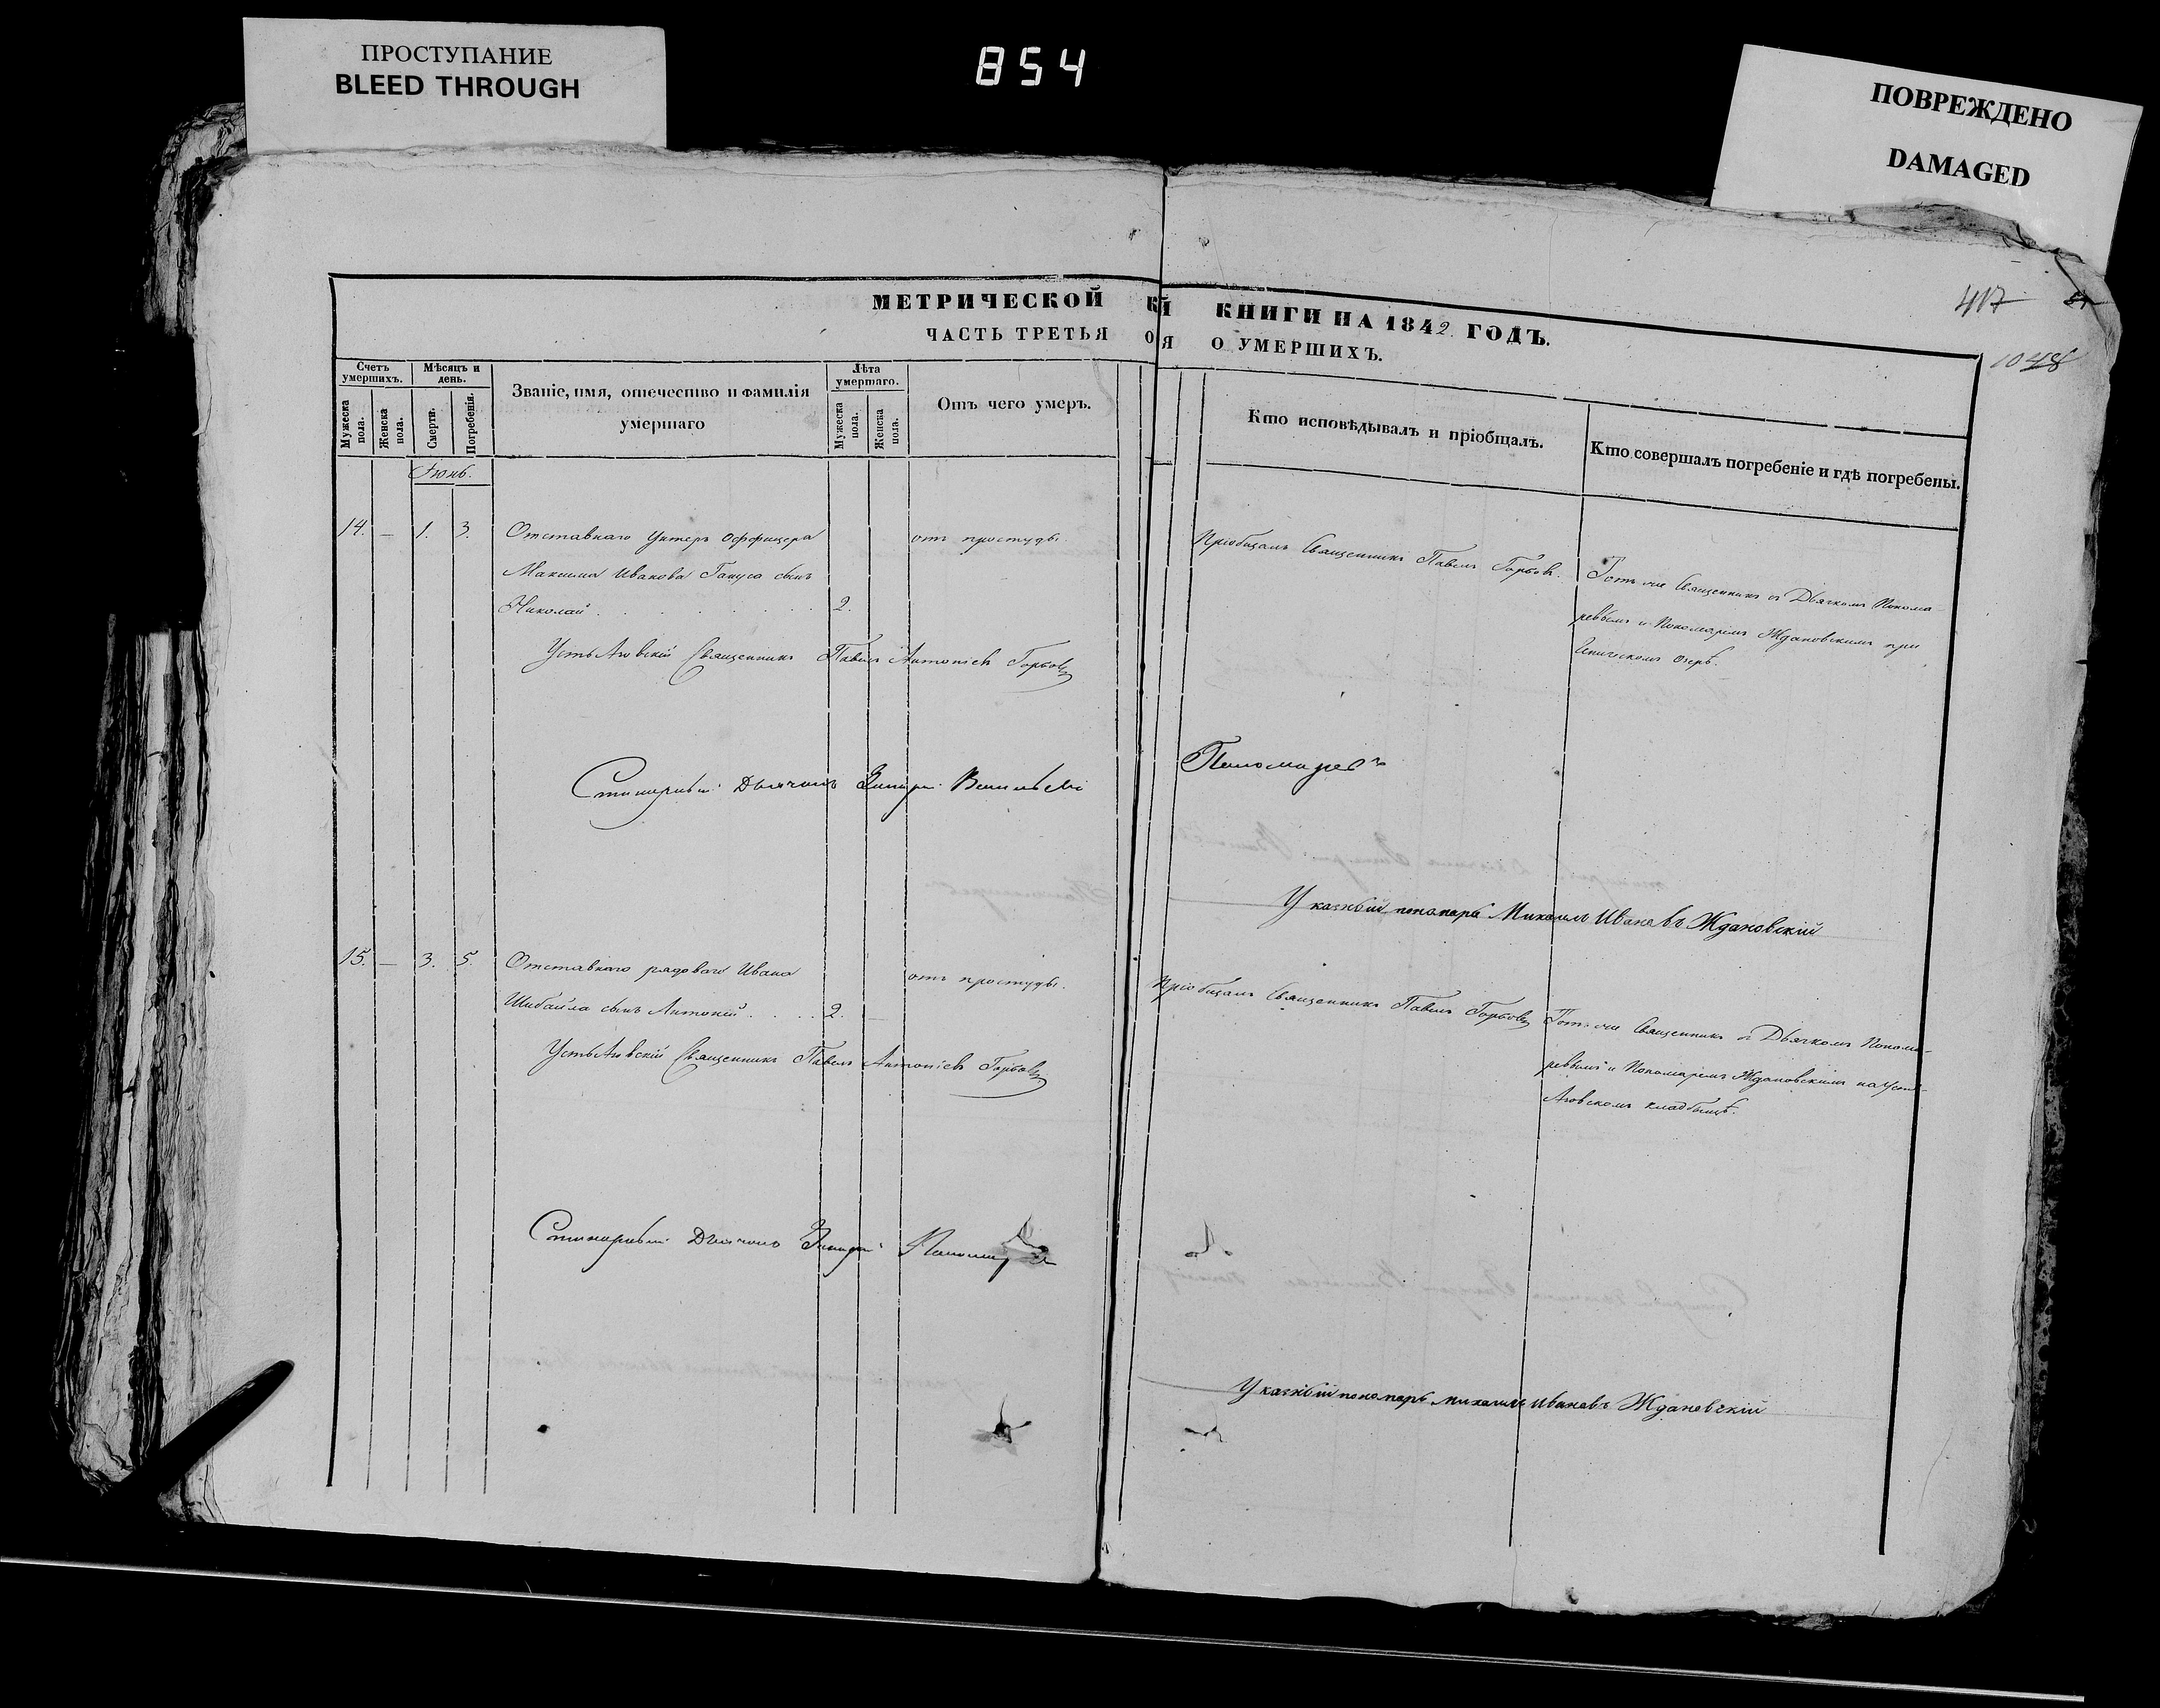 ПРОСТУПАНИЕ
BLEED THROUGH
854
ПОВРЕЖДЕНО
DAMAGED
417
1048
МЕТРИЧЕСКОЙ КЙ КНИГИ НА 1842 ГОДЪ.
ЧАСТЬ ТРЕТЬЯ О Я О УМЕРШИХЪ.
Счетъ умершихъ.
Мужеска пола.
Женска пола.
Мѣсяцъ и день.
Смерти.
Погребенія.
Званіе, имя, отечество и фамилія
умершаго
Лѣта умершаго.
Мужеска пола.
Женска пола.
Отъ чего умеръ.
Кто исповѣдывалъ и пріобщалъ.
Кто совершалъ погребеніе и гдѣ погребены.
Іюнь.
14. — 1. 3. Отставнаго Унтеръ Оффицера
Максима Иванова сынъ
Николай . . . . . . . 2.
отъ простуды.
Пріобщалъ Священникъ Павелъ Горбовъ.
Тотъ же Священникъ съ Дьячкомъ Понома-
ревымъ и Пономаремъ Ждановскимъ при
озерѣ.
Священникъ Павелъ Антоніевъ Горбовъ
Дьячокъ
Пономаревъ
Указный пономарь Михаилъ Ивановъ Ждановскій
15. — 3. 5. Отставнаго рядоваго Ивана
сынъ Антоній . . . . 2. —
отъ простуды.
Пріобщалъ Священникъ Павелъ Горбовъ
Тотъ же Священникъ съ Дьячкомъ Понома-
ревымъ и Пономаремъ Ждановскимъ на Усть-
кладбищѣ.
Священникъ Павелъ Антоніевъ Горбовъ
Дьячокъ
Указный пономарь Михаилъ Ивановъ Ждановскій